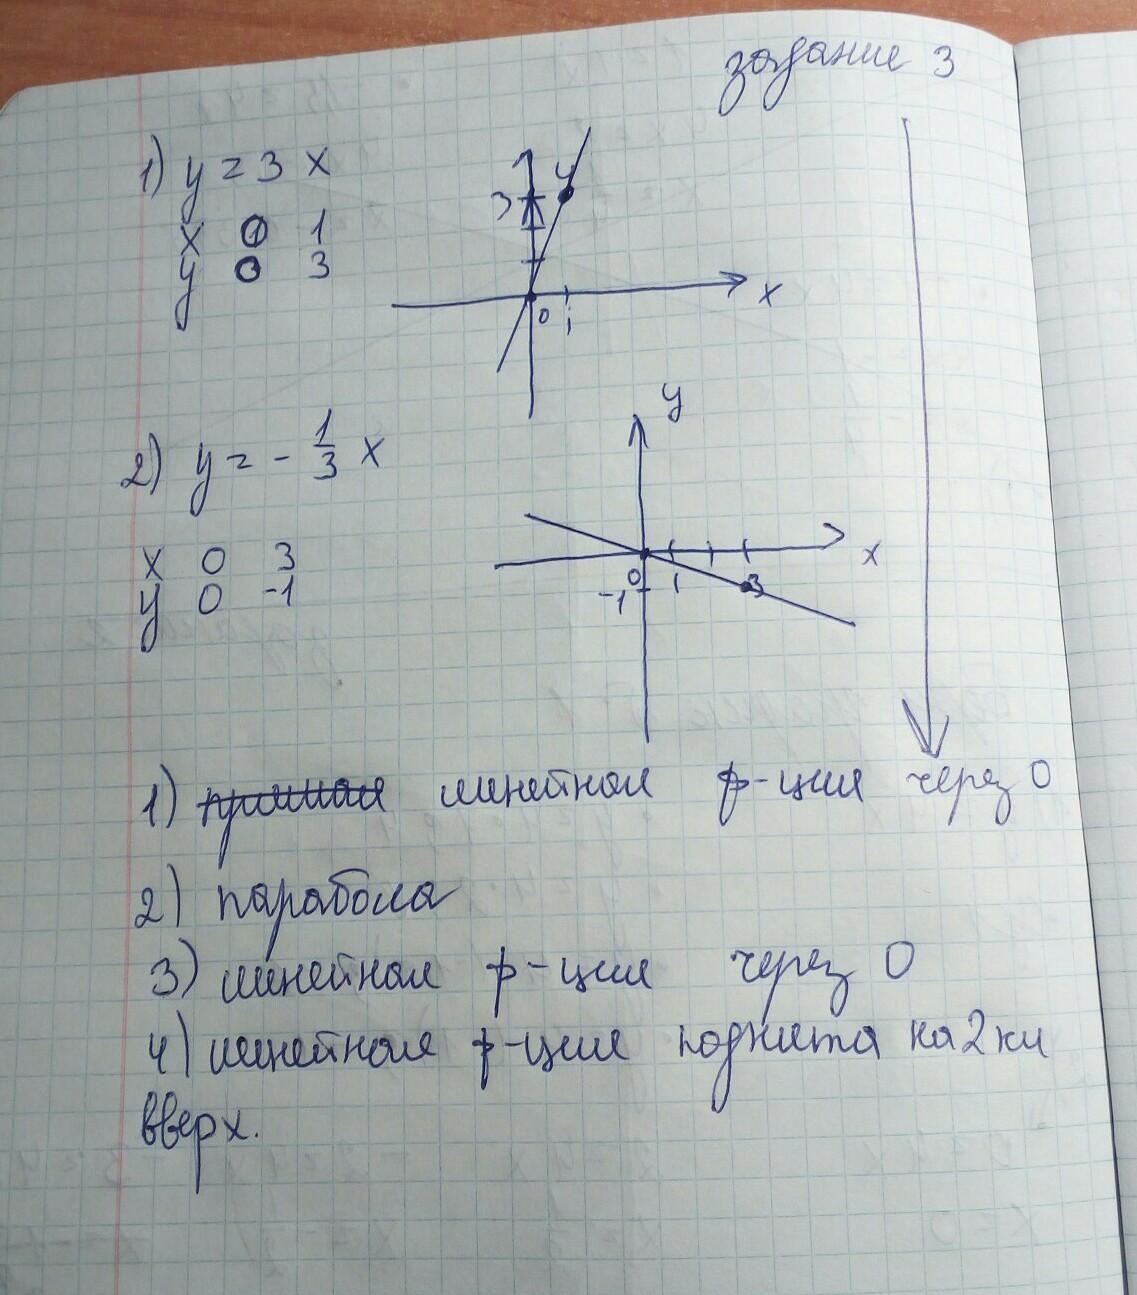 задание 3
1) y = 3 x
x 0 1
y 0 3
3 y
0 1 x
2) y = - 1/3 x
x 0 3
y 0 -1
y
x
0 1 3
-1
1) прямая линейная ф-ция через 0
2) парабола
3) линейная ф-ция через 0
4) линейная ф-ция поднята на 2 кл
вверх.